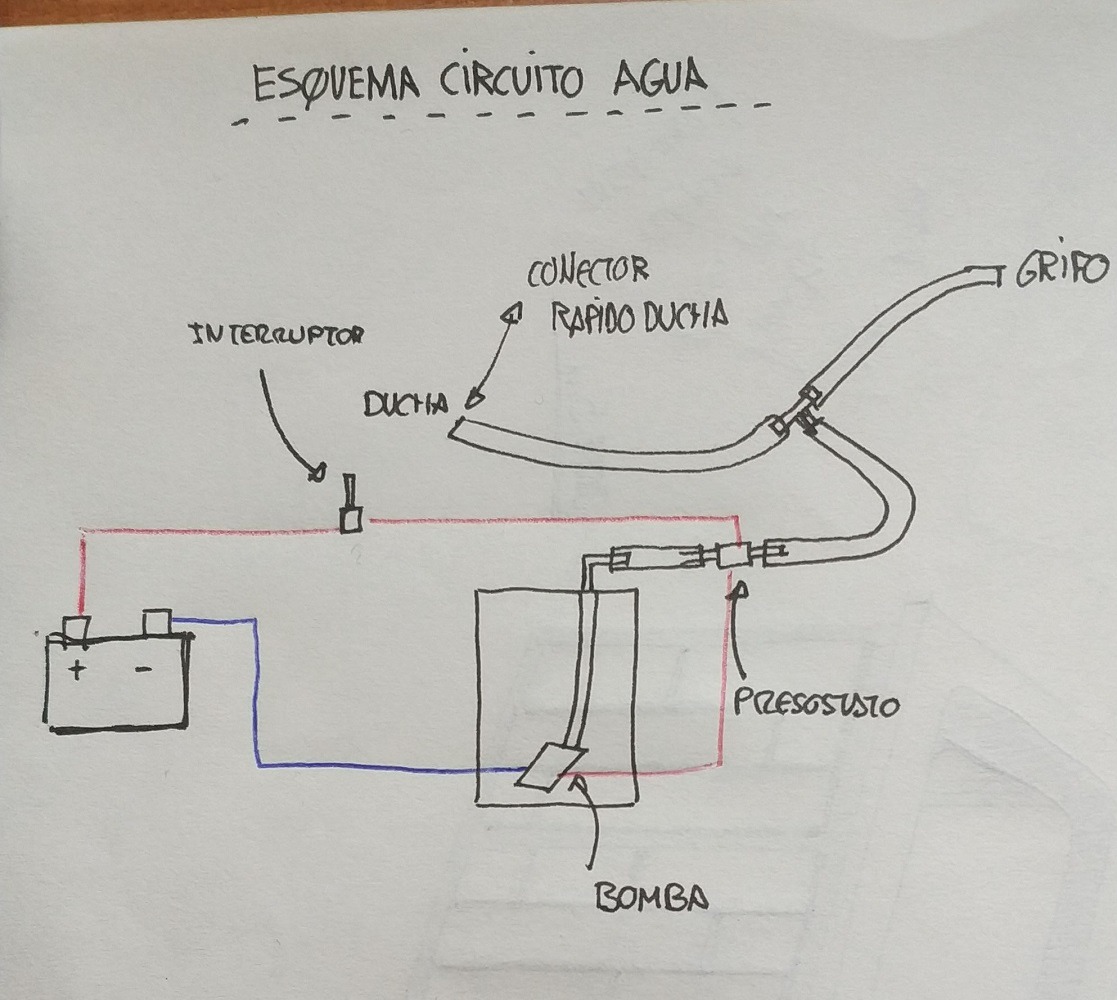 ESQUEMA CIRCUITO AGUA
CONECTOR
RAPIDO DUCHA
GRIFO
INTERRUPTOR
DUCHA
+ -
PRESOSTATO
BOMBA